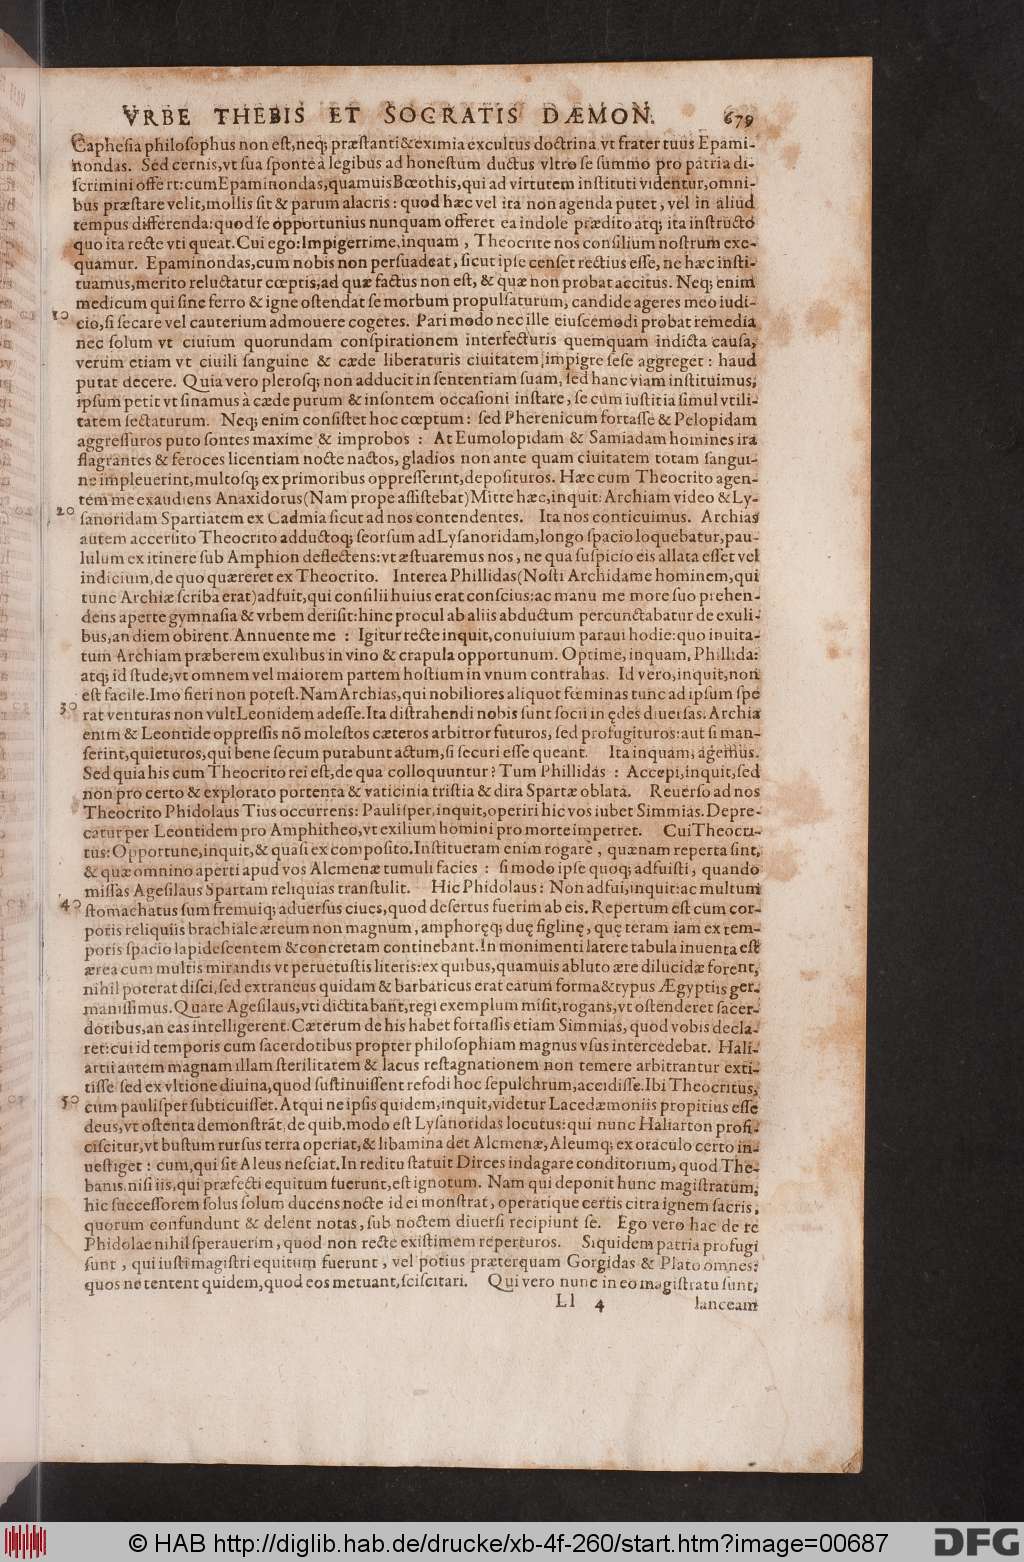 VRBE THEBIS ET SOCRATIS DÆMON. 679
Caphesia philosophus non est, neq; præstanti & eximia excultus doctrina vt frater tuus Epami-
nondas. Sed cernis, vt sua sponte à legibus ad honestum ductus vltro se summo pro patria di-
scrimini offert: cum Epaminondas, quamuis Bœothis, qui ad virtutem instituti videntur, omni-
bus præstare velit, mollis sit & parum alacris: quod hæc vel ita non agenda putet, vel in aliud
tempus differenda: quod se opportunius nunquam offeret ea indole prædito atq; ita instructo
quo ita recte vti queat. Cui ego: Impigerrime, inquam, Theocrite nos consilium nostrum exe-
quamur. Epaminondas, cum nobis non persuadeat, sicut ipse censet rectius esse, ne hæc insti-
tuamus, merito reluctatur cœptis, ad quæ factus non est, & quæ non probat accitus. Neq; enim
medicum qui sine ferro & igne ostendat se morbum propulsaturum, candide ageres meo iudi-
10 cio, si secare vel cauterium admouere cogeres. Pari modo nec ille eiuscemodi probat remedia
nec solum vt ciuium quorundam conspirationem interfecturis quemquam indicta causa,
verum etiam vt ciuili sanguine & cæde liberaturis ciuitatem, impigre sese aggreget: haud
putat decere. Quia vero plerosq; non adducit in sententiam suam, sed hanc viam instituimus,
ipsum petit vt sinamus à cæde purum & insontem occasioni instare, se cum iustitia simul vtili-
tatem sectaturum. Neq; enim consistet hoc cœptum: sed Pherenicum fortasse & Pelopidam
aggressuros puto sontes maxime & improbos: At Eumolopidam & Samiadam homines ira
flagrantes & feroces licentiam nocte nactos, gladios non ante quam ciuitatem totam sangui-
ne impleuerint, multosq; ex primoribus oppresserint, deposituros. Hæc cum Theocrito agen-
tem me exaudiens Anaxidotus (Nam prope assistebat) Mitte hæc, inquit: Archiam video & Ly-
20 sanoridam Spartiatem ex Cadmia sicut ad nos contendentes. Ita nos conticuimus. Archias
autem accersito Theocrito adductoq; seorsum ad Lysanoridam, longo spacio loquebatur, pau-
lulum ex itinere sub Amphion deflectens: vt æstuaremus nos, ne qua suspicio eis allata esset vel
indicium, de quo quæreret ex Theocrito. Interea Phillidas (Nosti Archidame hominem, qui
tunc Archiæ scriba erat) adfuit, qui consilii huius erat conscius: ac manu me more suo prehen-
dens aperte gymnasia & vrbem derisit: hinc procul ab aliis abductum percunctabatur de exuli-
bus, an diem obirent. Annuente me: Igitur recte inquit, conuiuium paraui hodie: quo inuita-
tum Archiam præberem exulibus in vino & crapula opportunum. Optime, inquam, Phillida:
atq; id stude, vt omnem vel maiorem partem hostium in vnum contrahas. Id vero, inquit, non
est facile. Imo fieri non potest. Nam Archias, qui nobiliores aliquot fœminas tunc ad ipsum spe
30 rat venturas non vult Leonidem adesse. Ita distrahendi nobis sunt socii in ędes diuersas. Archia
enim & Leontide oppressis nō molestos cæteros arbitror futuros, sed profugituros: aut si man-
serint, quieturos, qui bene secum putabunt actum, si securi esse queant. Ita inquam, agemus.
Sed quia his cum Theocrito rei est, de qua colloquuntur? Tum Phillidas: Accepi, inquit, sed
non pro certo & explorato portenta & vaticinia tristia & dira Spartæ oblata. Reuerso ad nos
Theocrito Phidolaus Tius occurrens: Paulisper, inquit, operiri hic vos iubet Simmias. Depre-
catur per Leontidem pro Amphitheo, vt exilium homini pro morte impetret. Cui Theocri-
tus: Opportune, inquit, & quasi ex composito. Institueram enim rogare, quænam reperta sint,
& quæ omnino aperti apud vos Alemenæ tumuli facies: si modo ipse quoq; adfuisti, quando
missas Agesilaus Spartam reliquias transtulit. Hic Phidolaus: Non adfui, inquit: ac multum
40 stomachatus sum fremuiq; aduersus ciues, quod desertus fuerim ab eis. Repertum est cum cor-
poris reliquiis brachiale æreum non magnum, amphoręq; duę figlinę, quę teram iam ex tem-
poris spacio lapidescentem & concretam continebant. In monimenti latere tabula inuenta est
ærea cum multis mirandis vt peruetustis literis: ex quibus, quamuis abluto ære dilucidæ forent,
nihil poterat disci, sed extraneus quidam & barbaricus erat earum forma & typus Ægyptiis ger-
manissimus. Quare Agesilaus, vti dictitabant, regi exemplum misit, rogans, vt ostenderet sacer-
dotibus, an eas intelligerent. Cæterum de his habet fortassis etiam Simmias, quod vobis decla-
ret: cui id temporis cum sacerdotibus propter philosophiam magnus vsus intercedebat. Hali-
artii autem magnam illam sterilitatem & lacus restagnationem non temere arbitrantur exti-
tisse sed ex vltione diuina, quod sustinuissent refodi hoc sepulchrum, accidisse. Ibi Theocritus,
50 cum paulisper subticuisset. Atqui ne ipsis quidem, inquit, videtur Lacedæmoniis propitius esse
deus, vt ostenta demonstrāt, de quib. modo est Lysanoridas locutus: qui nunc Haliarton profi-
ciscitur, vt bustum rursus terra operiat, & libamina det Alcmenæ, Aleumq; ex oraculo certo in-
uestiget: cum, qui sit Aleus nesciat. In reditu statuit Dirces indagare conditorium, quod The-
banis. nisi iis, qui præfecti equitum fuerunt, est ignotum. Nam qui deponit hunc magistratum,
hic successorem solus solum ducens nocte id ei monstrat, operatique certis citra ignem sacris,
quorum confundunt & delent notas, sub noctem diuersi recipiunt se. Ego vero hac de re
Phidolae nihil sperauerim, quod non recte existimem reperturos. Siquidem patria profugi
sunt, qui iusti magistri equitum fuerunt, vel potius præterquam Gorgidas & Plato omnes:
quos ne tentent quidem, quod eos metuant, sciscitari. Qui vero nunc in eo magistratu sunt,
Ll 4 lanceam
© HAB http://diglib.hab.de/drucke/xb-4f-260/start.htm?image=00687 DFG